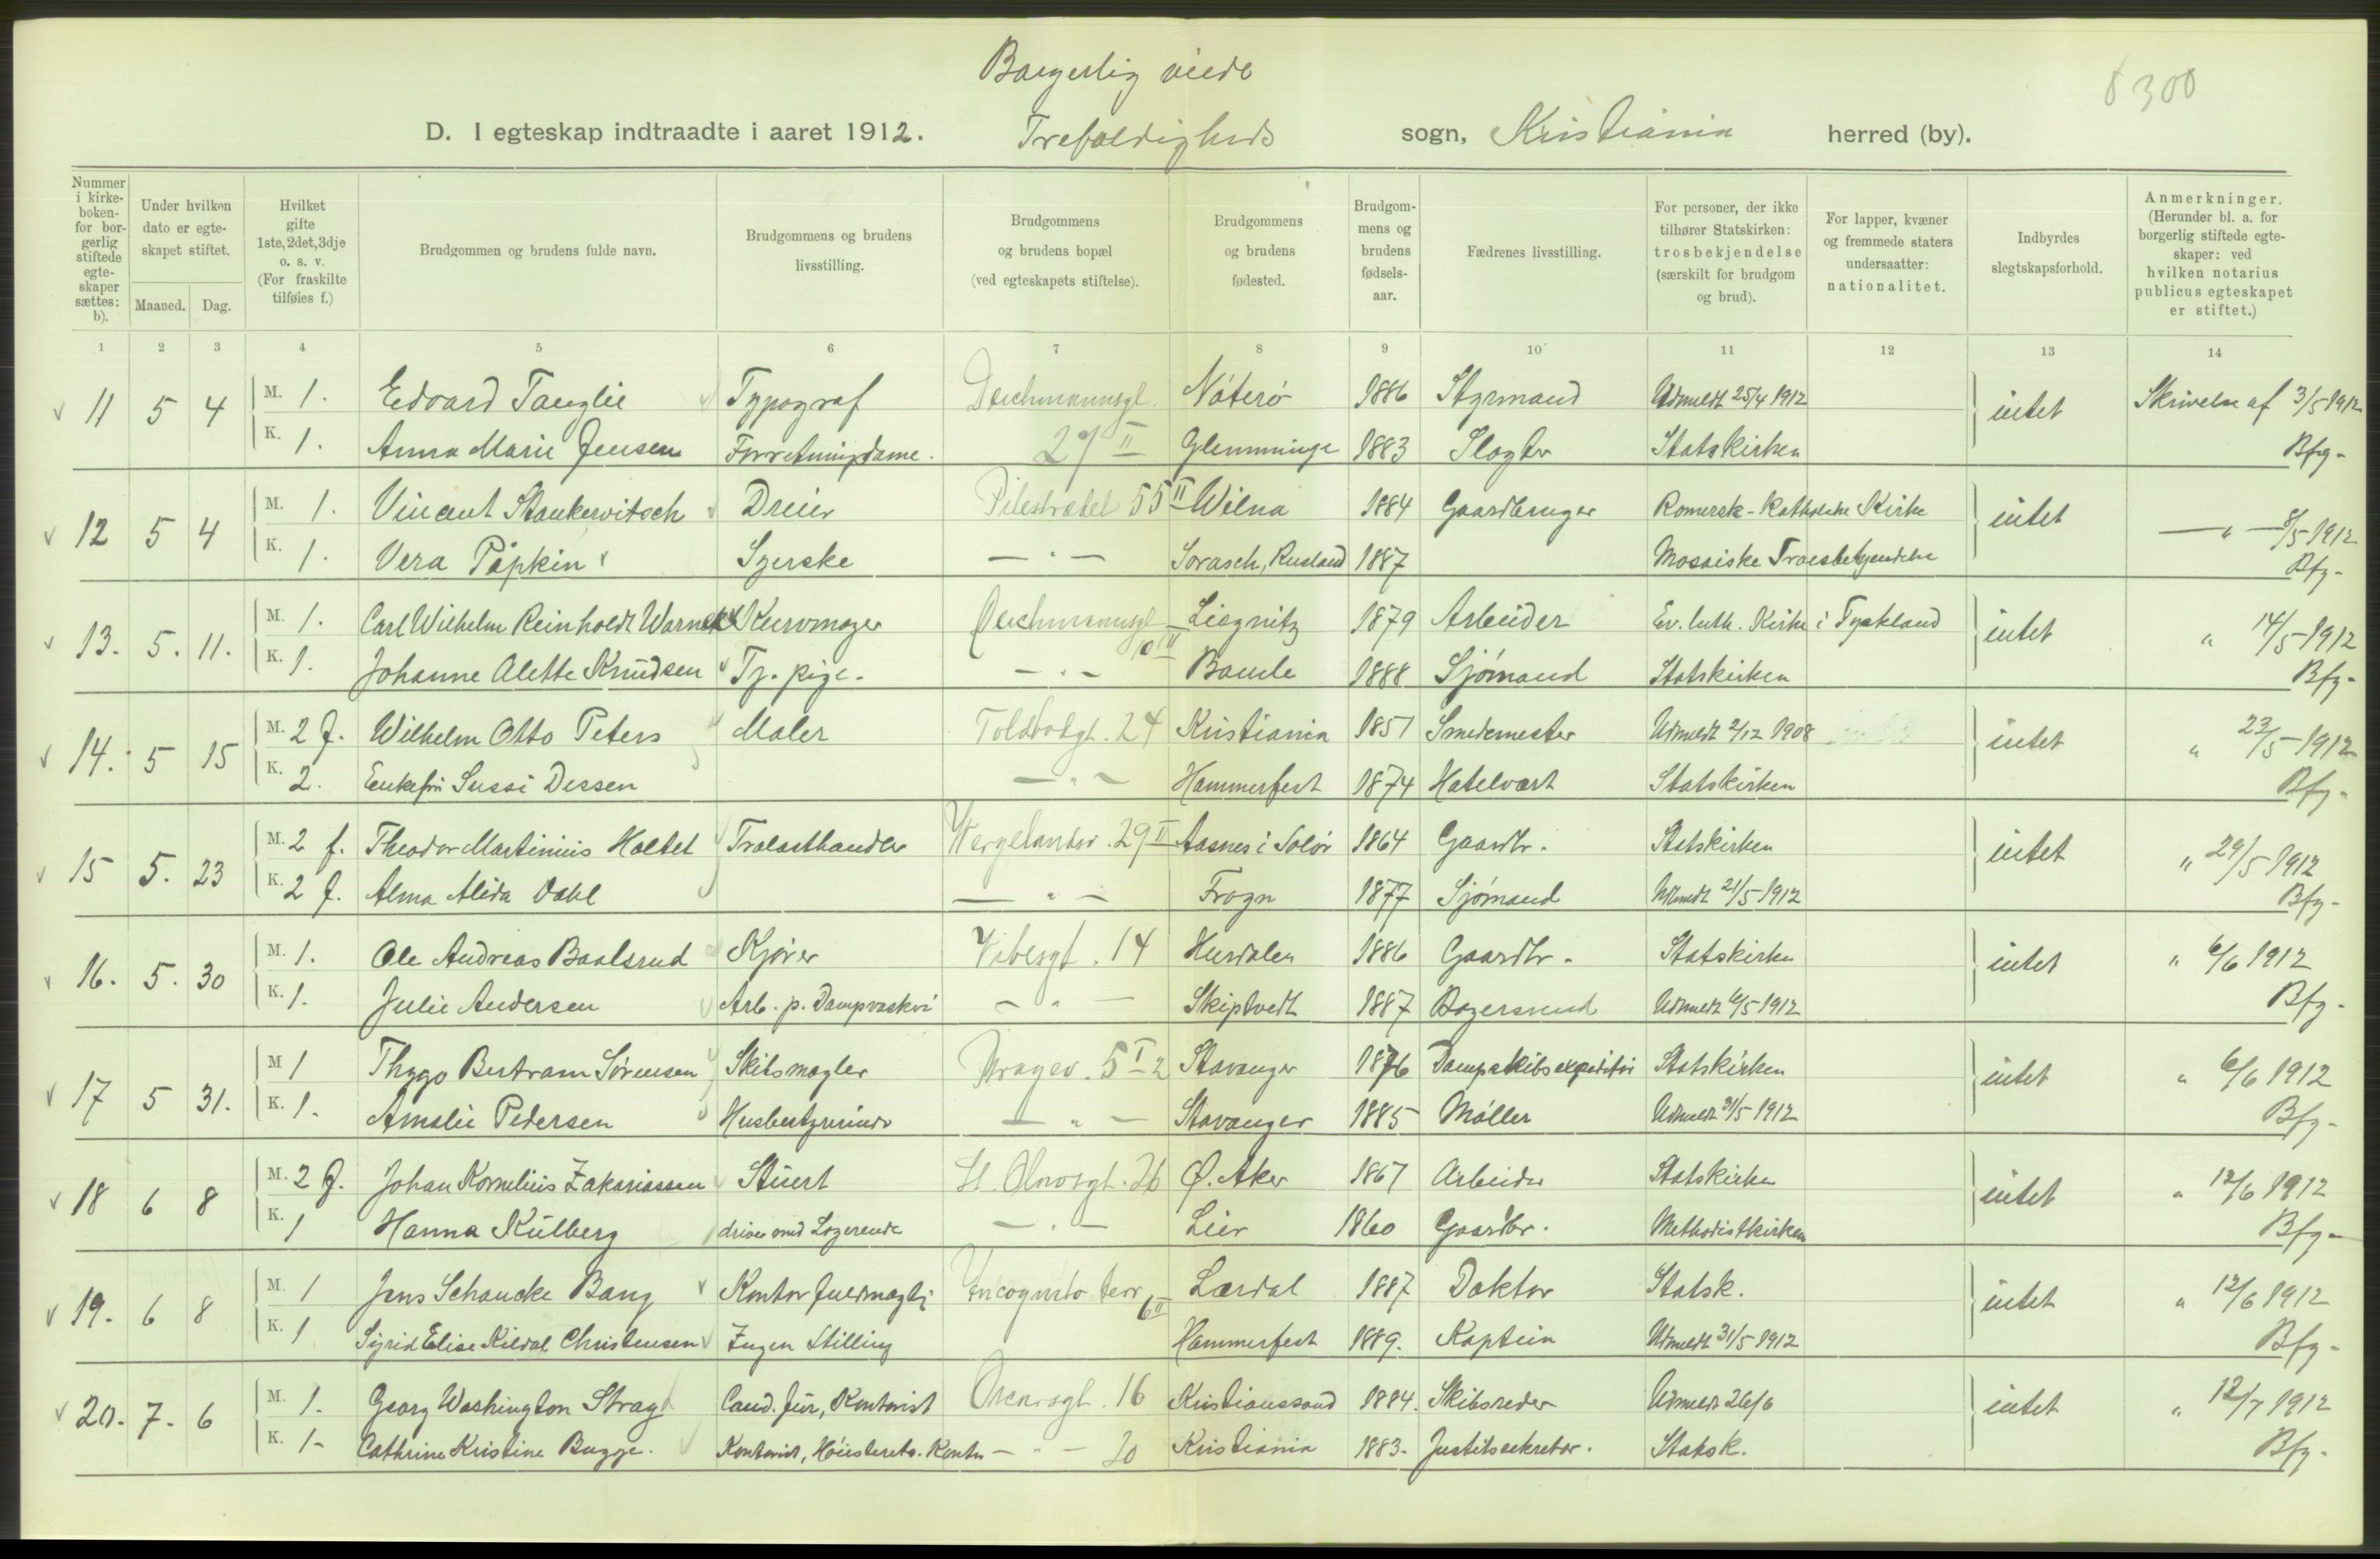 Borgerlig viede
8 300
D. I egteskap indtraadte i aaret 1912. Trefoldigheds sogn, Kristiania herred (by).
Nummer i kirkeboken for borgerlig stiftede egteskaper sættes: b).
Under hvilken dato er egteskapet stiftet.
Maaned. Dag.
Hvilket gifte 1ste, 2det, 3dje o. s. v. (For fraskilte tilføies f.)
Brudgommen og brudens fulde navn.
Brudgommens og brudens livsstilling.
Brudgommens og brudens bopæl (ved egteskapets stiftelse).
Brudgommens og brudens fødested.
Brudgommens og brudens fødselsaar.
Fædrenes livsstilling.
For personer, der ikke tilhører Statskirken: trosbekjendelse (særskilt for brudgom og brud).
For lapper, kvæner og fremmede staters undersaatter: nationalitet.
Indbyrdes slegtskapsforhold.
Anmerkninger. (Herunder bl. a. for borgerlig stiftede egteskaper: ved hvilken notarius publicus egteskapet er stiftet.)
1 2 3 4 5 6 7 8 9 10 11 12 13 14
11 5 4 M. 1. Edvard Tanglie Typograf Deichmannsgt. Nøterø 1886 Styrmand Udmeldt 25/4 1912 intet Skrivelse af 3/5 1912
K. 1. Anna Marie Jensen Forretningsdame. 27 II Glemminge 1883 Slagter Statskirken Bfg-
12 5 4 M. 1. Vincent Stankervitsch Dreier Pilestrædet 55 II Wilna 1884 Gaardbruger Romersk-Katholske Kirke intet — " — 8/5 1912
K. 1. Vera Papkin Syerske — " — Sorasch, Rusland 1887 Mosaiske Troesbekjendelse Bfg-
13. 5. 11. M. 1. Carl Wilhelm Reinholdt Warneck Kurvmager Deichmannsgt 10 II Liegnitz 1879 Arbeider Ev. luth. Kirke i Tyskland intet " 14/5 1912
K. 1. Johanne Alette Knudsen Tj. pige. — " — Bamle 1888 Sjømand Statskirken Bfg-
14. 5 15 M. 2 f. Wilhelm Otto Peters Maler Toldbodgt. 24 Kristiania 1851 Smedemester Udmeldt 2/12 1908 intet " 22/5 1912
K. 2. Enkefru Sussi Dessen — " — Hammerfest 1874 Hotelvært Statskirken Bfg-
15 5. 23 M. 2 f. Theodor Martinius Holtet Trælasthandler Wergelandsv. 29 II Aasnes i Solør 1864 Gaardbr. Statskirken intet " 29/5 1912
K. 2 f. Alma Alida Dahl — " — Frogn 1877 Sjømand Udmeldt 21/5 1912 Bfg-
16. 5. 30 M. 1. Ole Andreas Baalsrud Kjører Vibesgt. 14 Hurdalen 1886 Gaardbr. Statskirken intet " 6/6 1912
K. 1. Julie Andersen Arb. p. Dampvaskeri — " — Skiptvedt 1887 Udmeldt 6/5 1912 Bfg-
17 5 31. M 1 Thygo Bertram Sørensen Skibsmægler 5 I 2 Stavanger 1876 Dampskibsexpeditør Statskirken intet " 6/6 1912
K. 1. Amalie Pedersen Husbestyrerinde — " — Stavanger 1885 Møller Udmeldt 31/5 1912 Bfg-
18 6 8 M. 2 f. Johan Kornelius Zakariassen Stuert St. Olavsgt. 26 Ø. Aker 1867 Arbeider Statskirken intet " 12/6 1912
K. 1 Hanna Kulberg driver med Logerende — " — Lier 1860 Gaardbr. Methodistkirken Bfg-
19. 6 8 M. 1 Jens Schancke Bang Kontorfuldmægtig Incognito terr 6 II Lærdal 1887 Doktor Statsk. intet " 12/6 1912
K. 1 Sigrid Elise Kildal Christensen Ingen Stilling Hammerfest 1889. Kaptein Udmeldt 31/5 1912 Bfg-
20. 7. 6 M. 1. Georg Washington Stray Cand. jur, Kontorist Oscarsgt. 16 Kristianssand 1884. Skibsreder Udmeldt 26/6 intet " 12/7 1912
K. 1- Cathrine Kristine Bugge. Kontorist, Høiesterets. Kontor — " — 20 Kristiania 1883. Justitssekretær. Statsk. Bfg-